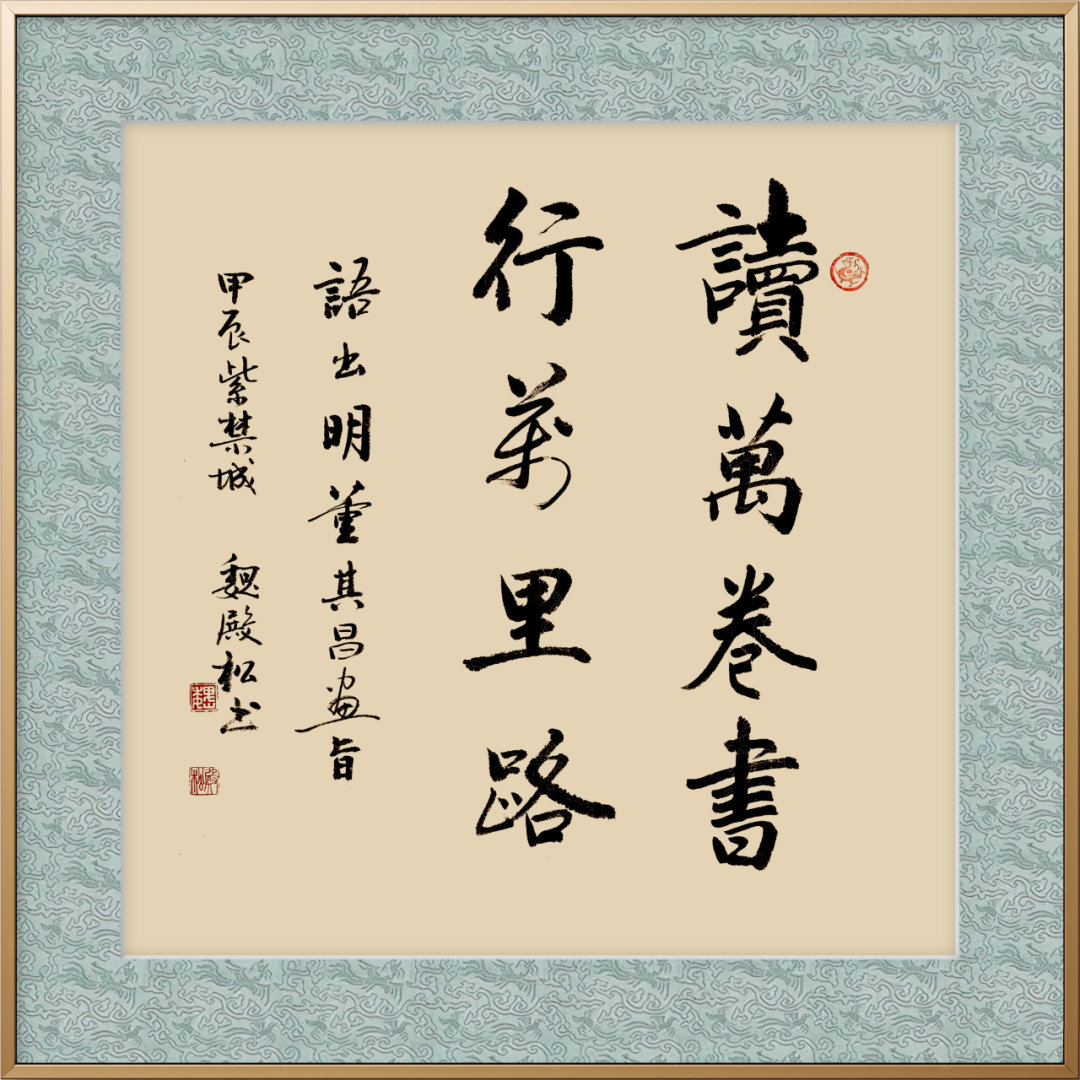 讀萬卷書
行萬里路
語出明董其昌畫旨
甲辰紫禁城 魏殿松书
魏